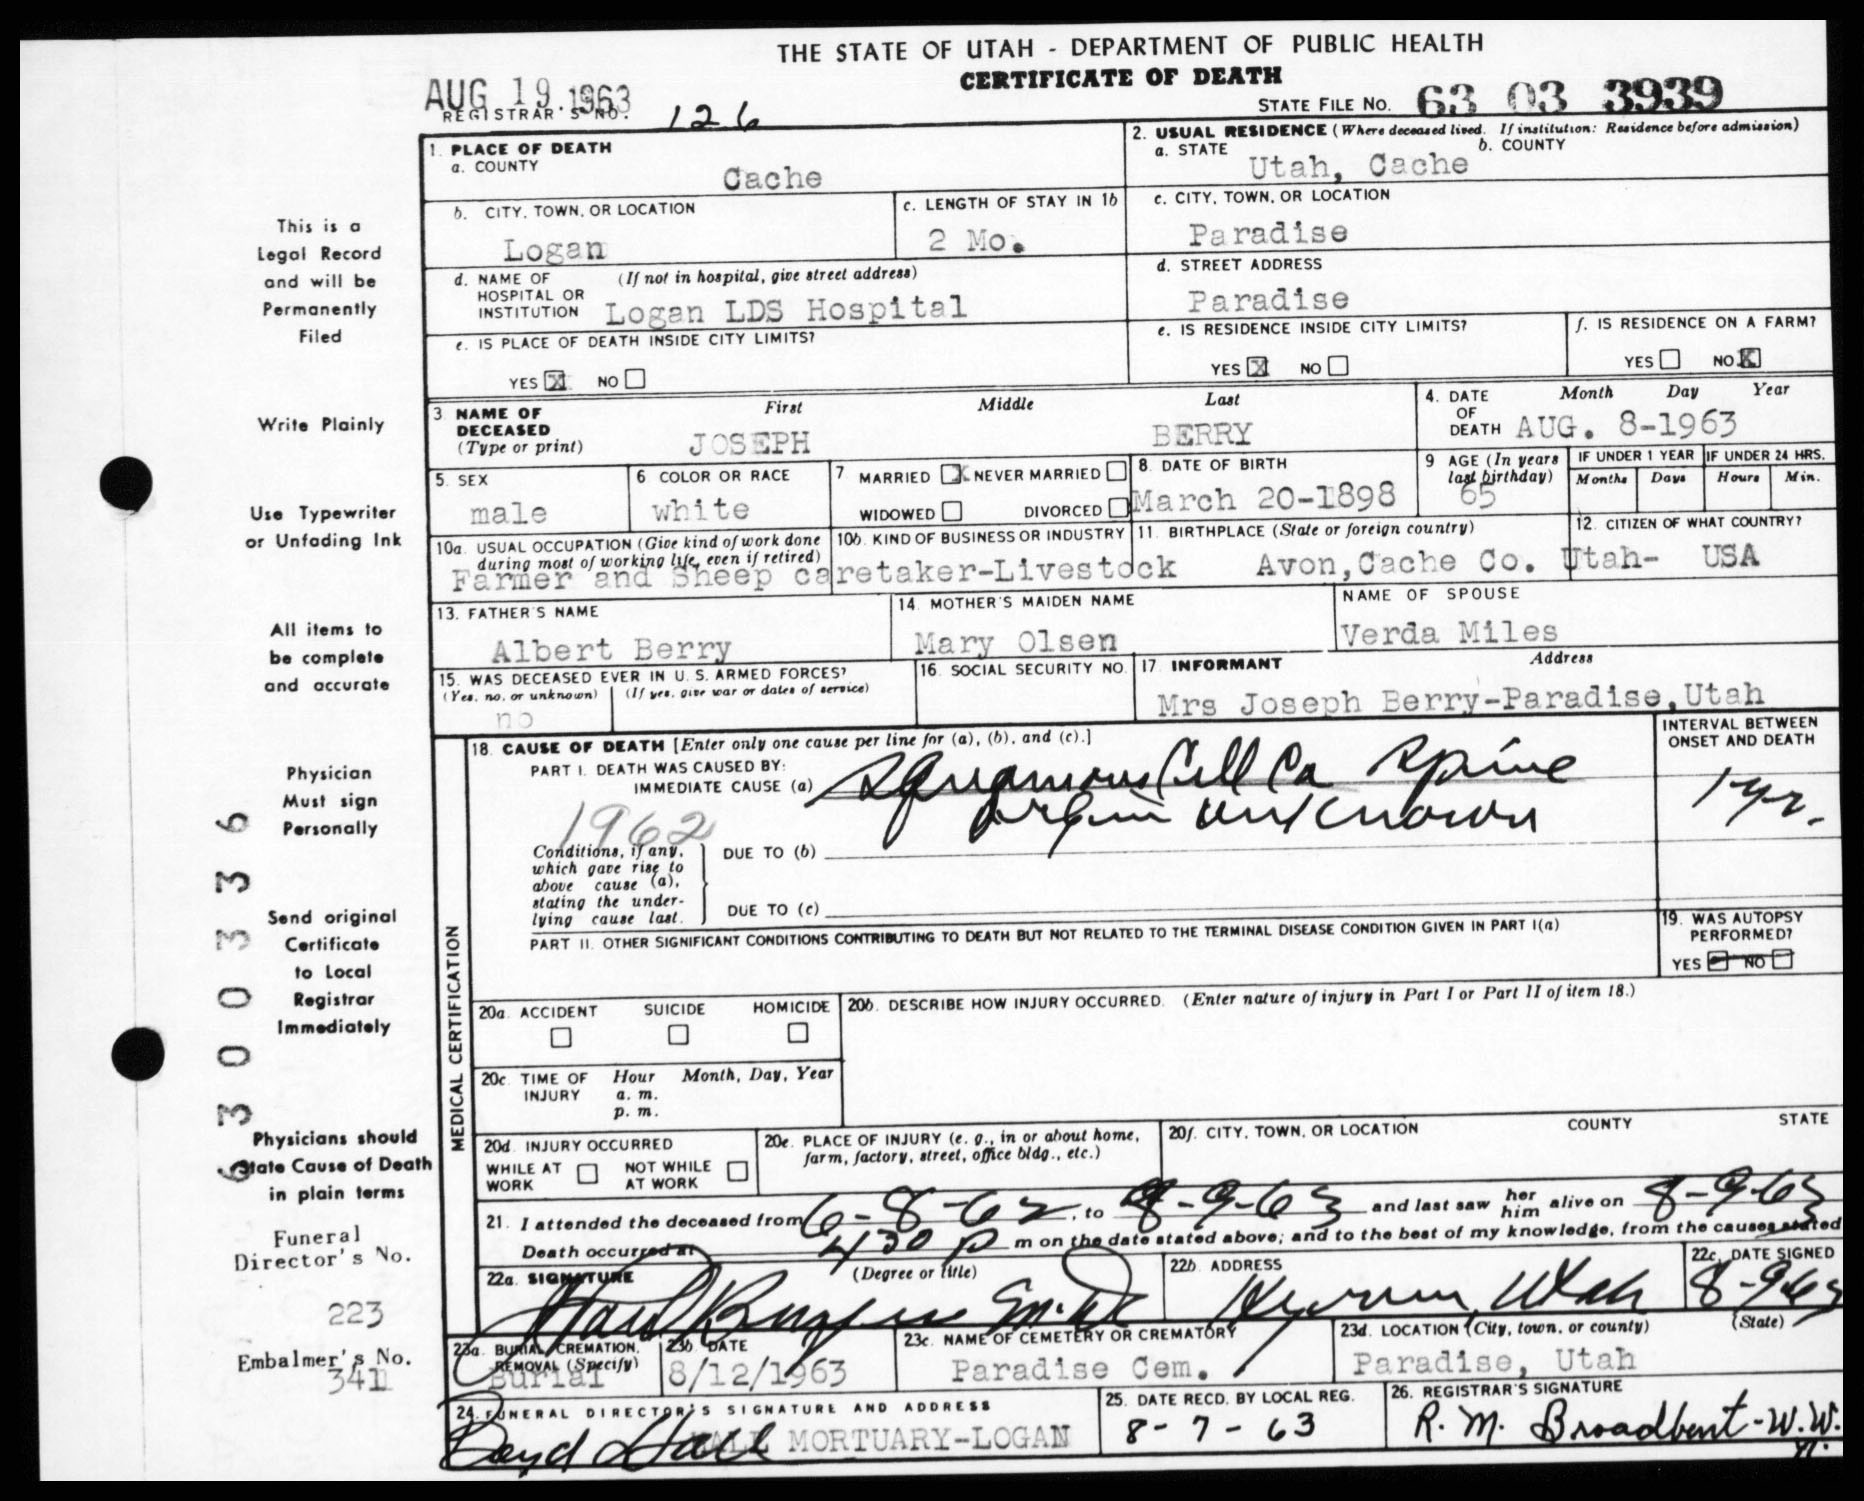 THE STATE OF UTAH - DEPARTMENT OF PUBLIC HEALTH
CERTIFICATE OF DEATH
AUG 19.1963
REGISTRAR'S NO. 126
STATE FILE NO. 63 03 3939
1. PLACE OF DEATH
a. COUNTY
Cache
2. USUAL RESIDENCE (Where deceased lived. If institution: Residence before admission)
a. STATE b. COUNTY
Utah, Cache
b. CITY, TOWN, OR LOCATION
Logan
c. LENGTH OF STAY IN 1b
2 Mo.
c. CITY, TOWN, OR LOCATION
Paradise
d. NAME OF HOSPITAL OR INSTITUTION (If not in hospital, give street address)
Logan LDS Hospital
d. STREET ADDRESS
Paradise
e. IS PLACE OF DEATH INSIDE CITY LIMITS?
YES X NO
e. IS RESIDENCE INSIDE CITY LIMITS?
YES X NO
f. IS RESIDENCE ON A FARM?
YES NO X
3 NAME OF DECEASED (Type or print)
First Middle Last
JOSEPH BERRY
4. DATE OF DEATH Month Day Year
AUG. 8-1963
5. SEX
male
6 COLOR OR RACE
white
7 MARRIED X NEVER MARRIED
WIDOWED DIVORCED
8. DATE OF BIRTH
March 20-1898
9 AGE (In years last birthday)
65
IF UNDER 1 YEAR IF UNDER 24 HRS.
Months Days Hours Min.
10a. USUAL OCCUPATION (Give kind of work done during most of working life, even if retired)
10b. KIND OF BUSINESS OR INDUSTRY
Farmer and Sheep caretaker-Livestock
11. BIRTHPLACE (State or foreign country)
Avon,Cache Co. Utah-
12. CITIZEN OF WHAT COUNTRY?
USA
13. FATHER'S NAME
Albert Berry
14. MOTHER'S MAIDEN NAME
Mary Olsen
NAME OF SPOUSE
Verda Miles
15. WAS DECEASED EVER IN U. S. ARMED FORCES?
(Yes, no, or unknown) (If yes, give war or dates of service)
no
16. SOCIAL SECURITY NO.
17. INFORMANT Address
Mrs Joseph Berry-Paradise,Utah
MEDICAL CERTIFICATION
18. CAUSE OF DEATH [Enter only one cause per line for (a), (b), and (c).]
PART I. DEATH WAS CAUSED BY:
IMMEDIATE CAUSE (a) Squamous Cell Ca Spine
Origin unknown
1962
INTERVAL BETWEEN ONSET AND DEATH
1 yr.
Conditions, if any, which gave rise to above cause (a), stating the underlying cause last.
DUE TO (b)
DUE TO (c)
PART II. OTHER SIGNIFICANT CONDITIONS CONTRIBUTING TO DEATH BUT NOT RELATED TO THE TERMINAL DISEASE CONDITION GIVEN IN PART I(a)
19. WAS AUTOPSY PERFORMED?
YES NO
20a. ACCIDENT SUICIDE HOMICIDE
20b. DESCRIBE HOW INJURY OCCURRED. (Enter nature of injury in Part I or Part II of item 18.)
20c. TIME OF INJURY Hour Month, Day, Year
a. m.
p. m.
20d. INJURY OCCURRED
WHILE AT WORK NOT WHILE AT WORK
20e. PLACE OF INJURY (e. g., in or about home, farm, factory, street, office bldg., etc.)
20f. CITY, TOWN, OR LOCATION COUNTY STATE
21. I attended the deceased from 6-8-62, to 8-9-63 and last saw her him alive on 8-9-63
Death occurred at 430 p m on the date stated above; and to the best of my knowledge, from the causes stated
22a. SIGNATURE (Degree or title)
22b. ADDRESS
Hyrum, Utah
22c. DATE SIGNED
8-9-63
23a. BURIAL, CREMATION, REMOVAL (Specify)
Burial
23b. DATE
8/12/1963
23c. NAME OF CEMETERY OR CREMATORY
Paradise Cem.
23d. LOCATION (City, town, or county) (State)
Paradise, Utah
24. FUNERAL DIRECTOR'S SIGNATURE AND ADDRESS
Boyd Hall
HALL MORTUARY-LOGAN
25. DATE RECD. BY LOCAL REG.
8-7-63
26. REGISTRAR'S SIGNATURE
R. M. Broadbent-W.W.
This is a
Legal Record
and will be
Permanently
Filed
Write Plainly
Use Typewriter
or Unfading Ink
All items to
be complete
and accurate
Physician
Must sign
Personally
Send original
Certificate
to Local
Registrar
Immediately
Physicians should
State Cause of Death
in plain terms
Funeral
Director's No.
223
Embalmer's No.
341
6 3 0 0 3 3 6